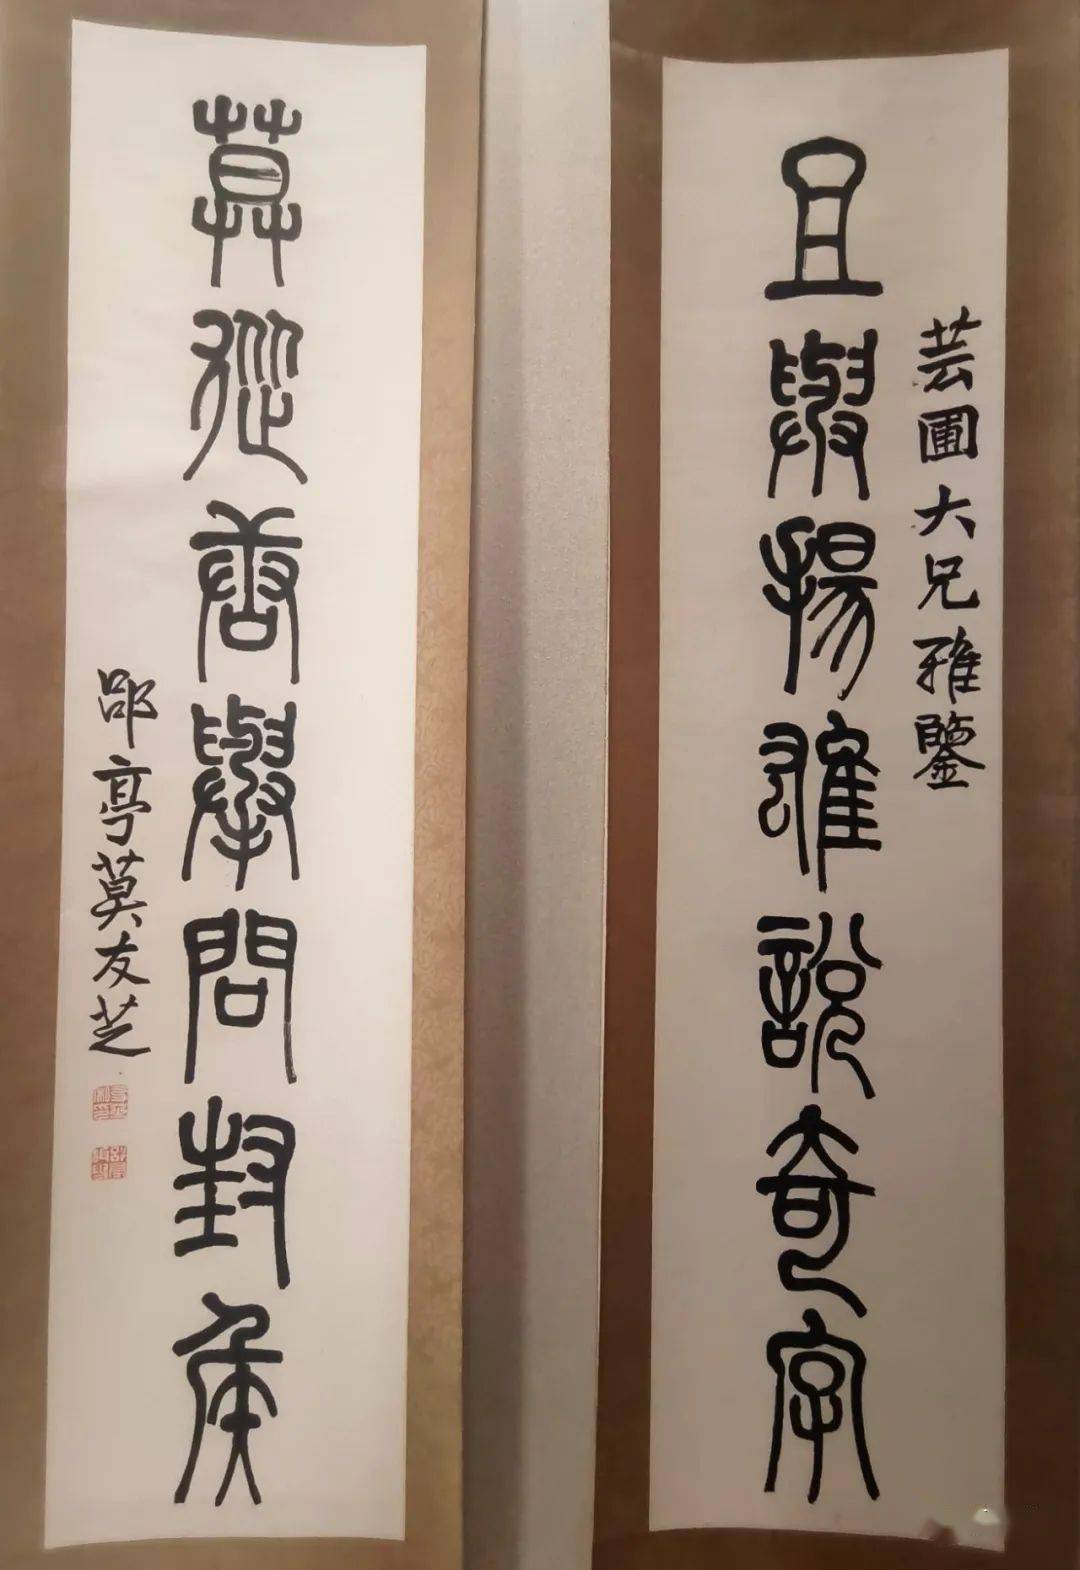 芸圃大兄雅鑒
且與揚雄說奇字
莫從唐舉問封侯
郘亭莫友芝